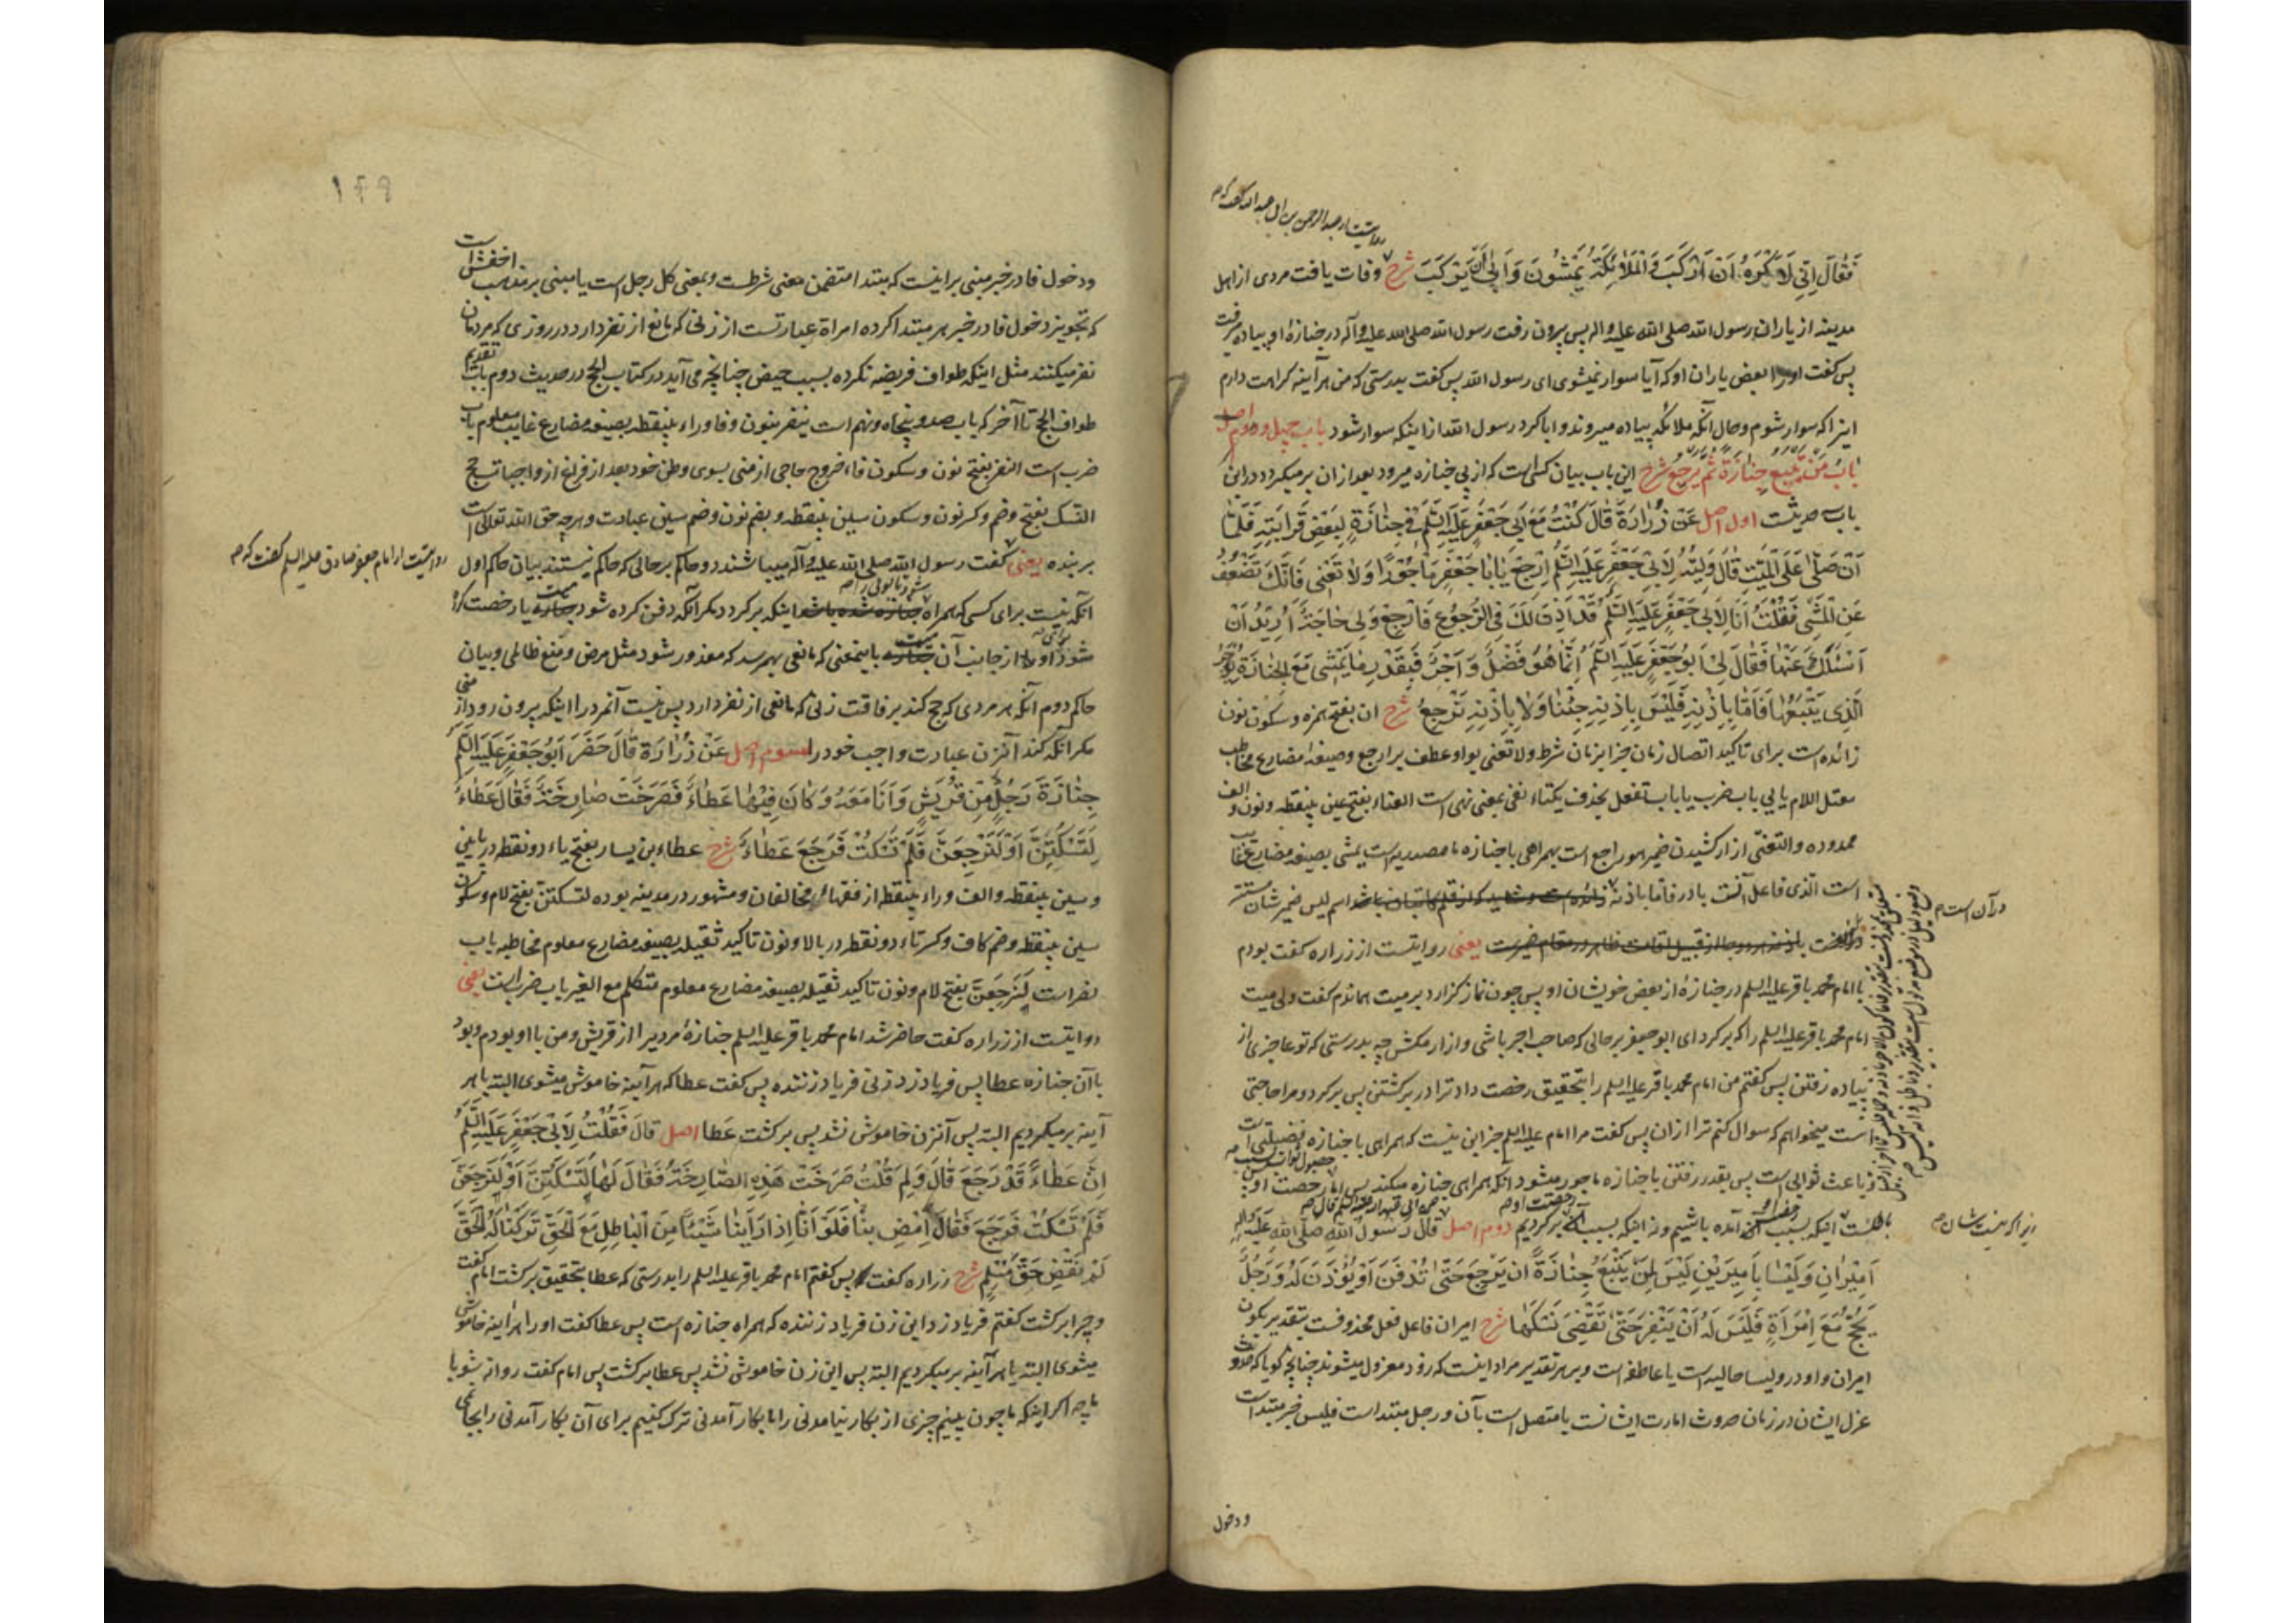 روایتست از عبدالرحمن بن ابی عبدالله گفت که
فَقَالَ اِنّی لَاَکْرَهُ اَنْ اَرْکَبَ وَالْمَلَائِکَةُ یَمْشُونَ وَاَبیٰ اَنْ یَرْکَبَ شرح وفات یافت مردی از اهل
مدینه از یاران رسول الله صلی الله علیه و اله پس بیرون رفت رسول الله صلی الله علیه و آله در جنازهٔ او پیاده میرفت
پس گفت اورا بعض یاران او که آیا سوار نمیشوی ای رسول الله پس گفت بدرستی که من هر آینه کراهت دارم
اینرا که سوار شوم و حال آنکه ملائکه پیاده میروند و ابا کرد رسول الله از اینکه سوار شود باب چهل و دوم اصل
بَابُ مَنْ یَتْبَعُ جِنَازَةً ثُمَّ یَرْجِعُ شرح این باب بیان کسی است که از پی جنازه میرود بعد از ان بر میکردد درین
باب حدیث است اول اصل عَنْ زُرَارَةَ قَالَ کُنْتُ مَعَ اَبی جَعْفَرٍ عَلَیْهِ السَّلَمُ فی جِنَازَةٍ لِبَعْضِ قَرَابَتِهِ فَلَمَّا
اَنْ صَلّیٰ عَلَی الْمَیِّتِ قَالَ وَلِیُّهُ لِاَبی جَعْفَرٍ عَلَیْهِ السَّلَمُ اِرْجِعْ یَا بَا جَعْفَرٍ مَاْجُوْرًا وَلَا تَعَنّی فَاِنَّکَ تَضْعُفُ
عَنِ الْمَشْیِ فَقُلْتُ اَنَا لِاَبی جَعْفَرٍ عَلَیْهِ السَّلَمُ قَدْ اَذِنَ لَکَ فِی الرُّجُوْعِ فَارْجِعْ وَلی حَاجَةٌ اُرِیْدُ اَنْ
اَسْئَلَکَ عَنْهَا فَقَالَ لی اَبُوْ جَعْفَرٍ عَلَیْهِ السَّلَمُ اِنَّمَا هُوَ فَضْلٌ وَاَجْرٌ فَبِقَدْرِ مَا یَمْشی مَعَ الْجِنَازَةِ یُوْجَرُ
الَّذِی یَتْبَعُهَا فَاَمَّا بِاِذْنِهِ فَلَیْسَ بِاِذْنِهِ جِئْنَا وَلَا بِاِذْنِهِ نَرْجِعُ شرح ان بفتح همزه و سکون نون
زائده است برای تاکید اتصال زمان جزا بزمان شرط ولا تعنی بواو عطف بر ارجع وصیغهٔ مضارع مخاطب
معتل اللام یایی باب ضرب یا باب تفعل بحذف یکتاء نفی بمعنی نهی است العناء بفتح عین بینقطه و نون و الف
ممدوده والتعنّی ازار کشیدن ضمیر هو راجع است بهمراهی با جنازه ما مصدریه است یمشی بصیغه مضارع غایب
است الّذی فاعل آنست با در فاما باذنه اسم لیس ضمیر شان مستتر
در آن است
یعنی روایتست از زراره گفت بودم
با امام محمد باقر علیه السلم در جنازهٔ از بعض خویشان او پس چون نماز گزارد بر میت هماندم گفت ولی میت
امام محمد باقر علیه السلم را که بر گرد ای ابو جعفر بر حالی که صاحب اجر باشی و ازار مکش چه بدرستی که تو عاجزی از
پیاده رفتن پس گفتم من امام محمد باقر علیه السلم را بتحقیق رخصت داد ترا در برگشتن پس برگرد و مرا حاجتی
است میخواهم که سوال کنم ترا از ان پس گفت مرا امام علیه السلم جز این نیست که همراهی با جنازه فضیلتی است
و باعث ثوابی است پس بقدر رفتن با جنازه ماجور میشود آنکه همراهی جنازه میکند پس اما رخصت او پس
اینکه بسبب آن آمده باشیم و نه اینکه بسبب آن برگردیم دوم اصل قَالَ رَسُوْلُ اللهِ صَلَّی اللهُ عَلَیْهِ وَاٰلِهِ
زیرا که نیست شان
اَمِیْرَانِ وَلَیْسَا بِاَمِیْرَیْنِ لَیْسَ لِمَنْ یَتْبَعُ جِنَازَةً اَنْ یَرْجِعَ حَتّیٰ تُدْفَنَ اَوْ یُؤْذَنَ لَهُ وَرَجُلٌ
یَحُجُّ مَعَ اِمْرَاَةٍ فَلَیْسَ لَهُ اَنْ یَنْفِرَ حَتّیٰ تَقْضِیَ نُسُکَهَا شرح امیران فاعل فعل محذوفست بتقدیر یکون
امیران و او در ولیسا حالیه است یا عاطفه است و بر هر تقدیر مراد اینست که زود معزول میشوند چنانچه گویا که حدوث
عزل ایشان در زمان حدوث امارت ایشانست یا متصل است بآن و رجل مبتداست فلیس خبر مبتداست
ودخول
۱۴۹
ودخول فا در خبر مبنی بر اینست که مبتدا متضمن معنی شرطست و بمعنی کل رجل است یا مبنی بر مذهب اخفش است
که تجویز دخول فا در خبر هر مبتدا کرده امراة عبارتست از زنی که مانع از نفر دارد در روزی که مردمان
نفر میکنند مثل اینکه طواف فریضه نکرده بسبب حیض چنانچه می آید در کتاب الحج در حدیث دوم باب تقدیم
طواف الحج تا آخر که باب صد و پنجاه و نهم است ینفر بنون و فا و راء بینقطه بصیغه مضارع غایب معلوم باب
ضرب است النفر بفتح نون و سکون فا، خروج حاجی از منی بسوی وطن خود بعد از فراغ از واجبات حج
النسک بفتح و ضم و کسر نون و سکون سین بینقطه و بضم نون و ضم سین عبادت و هر چه حق الله تعالی است
بر بنده یعنی گفت رسول الله صلی الله علیه و آله میباشند دو حاکم بر حالی که حاکم نیستند بیان حاکم اول
روایتست از امام جعفر صادق علیه السلم گفت که
آنکه نیست برای کسی که همراه اینکه برگردد مگر آنکه دفن کرده شود میت یا رخصت کرده
شود او را از جانب آن میت باینمعنی که مانعی بهمرسد که معذور شود مثل مرض و منع ظالمی و بیان
حاکم دوم آنکه هر مردی که حج کند برفاقت زنی که مانعی از نفر دارد پس نیست آنمرد را اینکه بیرون رود از منی
مگر آنکه کند آنزن عبادت واجب خود را سوم اصل عَنْ زُرَارَةَ قَالَ حَضَرَ اَبُوْ جَعْفَرٍ عَلَیْهِ السَّلَمُ
جِنَازَةَ رَجُلٍ مِنْ قُرَیْشٍ وَاَنَا مَعَهُ وَکَانَ فِیْهَا عَطَاءٌ فَصَرَخَتْ صَارِخَةٌ فَقَالَ عَطَاءٌ
لَتَسْکُتِنَّ اَوْ لَنَرْجِعَنَّ فَلَمْ تَسْکُتْ فَرَجَعَ عَطَاءٌ شرح عطاء بن یسار بفتح یاء دو نقطه در پایین
و سین بینقطه و الف و راء بینقطه از فقهاء مخالفان و مشهور در مدینه بوده لتسکتنّ بفتح لام و سکون
سین بینقطه و ضم کاف و کسر تاء دو نقطه در بالا و نون تاکید ثقیله بصیغه مضارع معلوم مخاطبه باب
نصر است لَنَرْجِعَنَّ بفتح لام و نون تاکید ثقیله بصیغه مضارع معلوم متکلم مع الغیر باب ضرب است یعنی
روایتست از زراره گفت حاضر شد امام محمد باقر علیه السلم جنازهٔ مردیرا از قریش و من با او بودم و بود
با آن جنازه عطا پس فریاد زد زنی فریاد زننده پس گفت عطا که هر آینه خاموش میشوی البته یا هر
آینه بر میگردیم البته پس آنزن خاموش نشد پس برگشت عطا اصل قَالَ فَقُلْتُ لِاَبی جَعْفَرٍ عَلَیْهِ السَّلَمُ
اِنَّ عَطَاءً قَدْ رَجَعَ قَالَ وَلِمَ قُلْتُ صَرَخَتْ هٰذِهِ الصَّارِخَةُ فَقَالَ لَهَا لَتَسْکُتِنَّ اَوْ لَنَرْجِعَنَّ
فَلَمْ تَسْکُتْ فَرَجَعَ فَقَالَ اِمْضِ بِنَا فَلَوْ اَنَّا اِذَا رَاَیْنَا شَیْئًا مِنَ الْبَاطِلِ مَعَ الْحَقِّ تَرَکْنَا لَهُ الْحَقَّ
لَمْ نَقْضِ حَقَّ مُسْلِمٍ شرح زراره گفت پس گفتم امام محمد باقر علیه السلم را بدرستی که عطا بتحقیق برگشت امام گفت
و چرا برگشت گفتم فریاد زد این زن فریاد زننده که همراه جنازه است پس عطا گفت اورا هر آینه خاموش
میشوی البته یا هر آینه بر میگردیم البته پس این زن خاموش نشد پس عطا برگشت پس امام گفت روانه شو با
ما چه اگر اینکه ما چون بینیم چیزی از بکار نیامدنی را با بکار آمدنی ترک کنیم برای آن بکار آمدنی را بجا